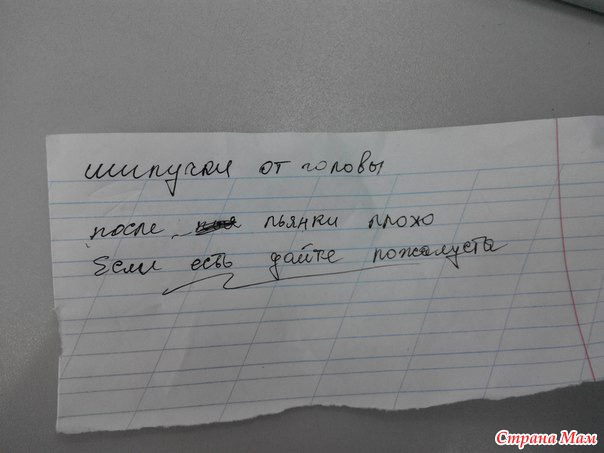 шипучки от головы
после пьянки плохо
Если есть дайте пожалуста
Страна Мам